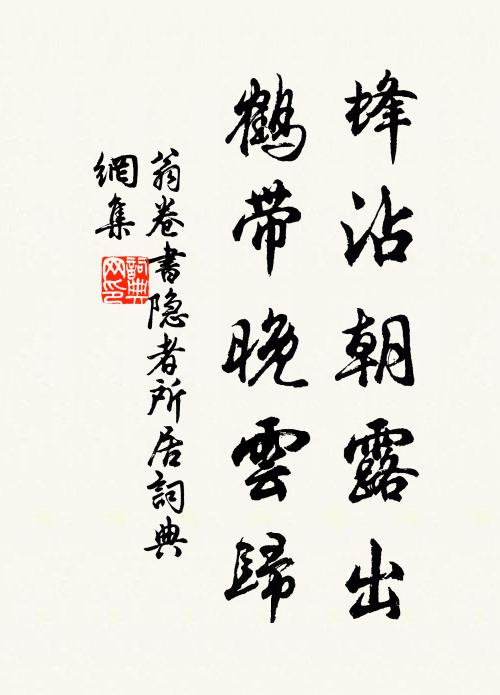 蜂沾朝露出
鶴帶晚雲歸
翁卷書隐者所居詞典
網集
詞典
网印